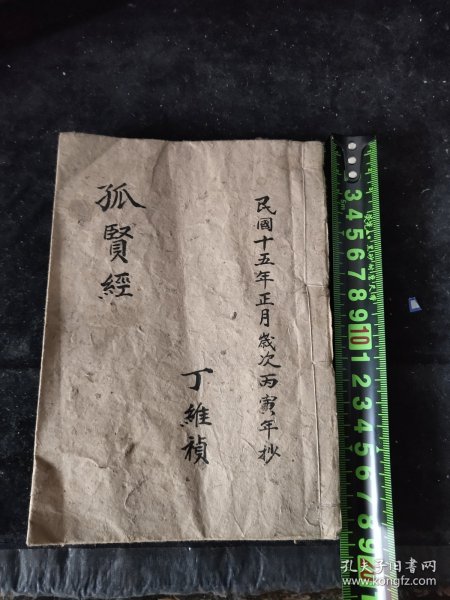 民國十五年正月歲次丙寅年抄
丁維禎
孤賢經
5m
3 4 5 6 7 8 9 10 1 2 3 4 5 6 7 8 9
孔夫子旧书网